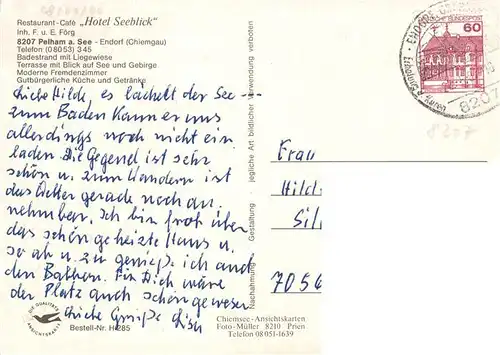 Restaurant-Café „Hotel Seeblick"
Inh. F. u. E. Förg
8207 Pelham a. See - Endorf (Chiemgau)
Telefon (08053) 345
Badestrand mit Liegewiese
Terrasse mit Blick auf See und Gebirge
Moderne Fremdenzimmer
Gutbürgerliche Küche und Getränke
Liebe Hilde, es lächelt der See -
zum Baden kann er uns
allerdings noch nicht ein
laden. Die Gegend ist sehr
schön u. zum Wandern ist
das Wetter gerade noch an-
nehmbar. Ich bin froh über
das schön geheizte Haus u.
so ab u. zu genieße ich auch
den Balkon. Für Dich wäre
der Platz auch schön gewesen
Liebe Grüße
DIE QUALITÄTS
ANSICHTSKARTE
Bestell-Nr. H 285
Nachahmung - Gestaltung - jegliche Art bildlicher Verwendung verboten
Chiemsee-Ansichtskarten
Foto-Müller 8210 Prien
Telefon 08051-1639
DEUTSCHE BUNDESPOST
60
ENDORF, OBERBAY
8207
8207
Frau
Hild
Sil
7056